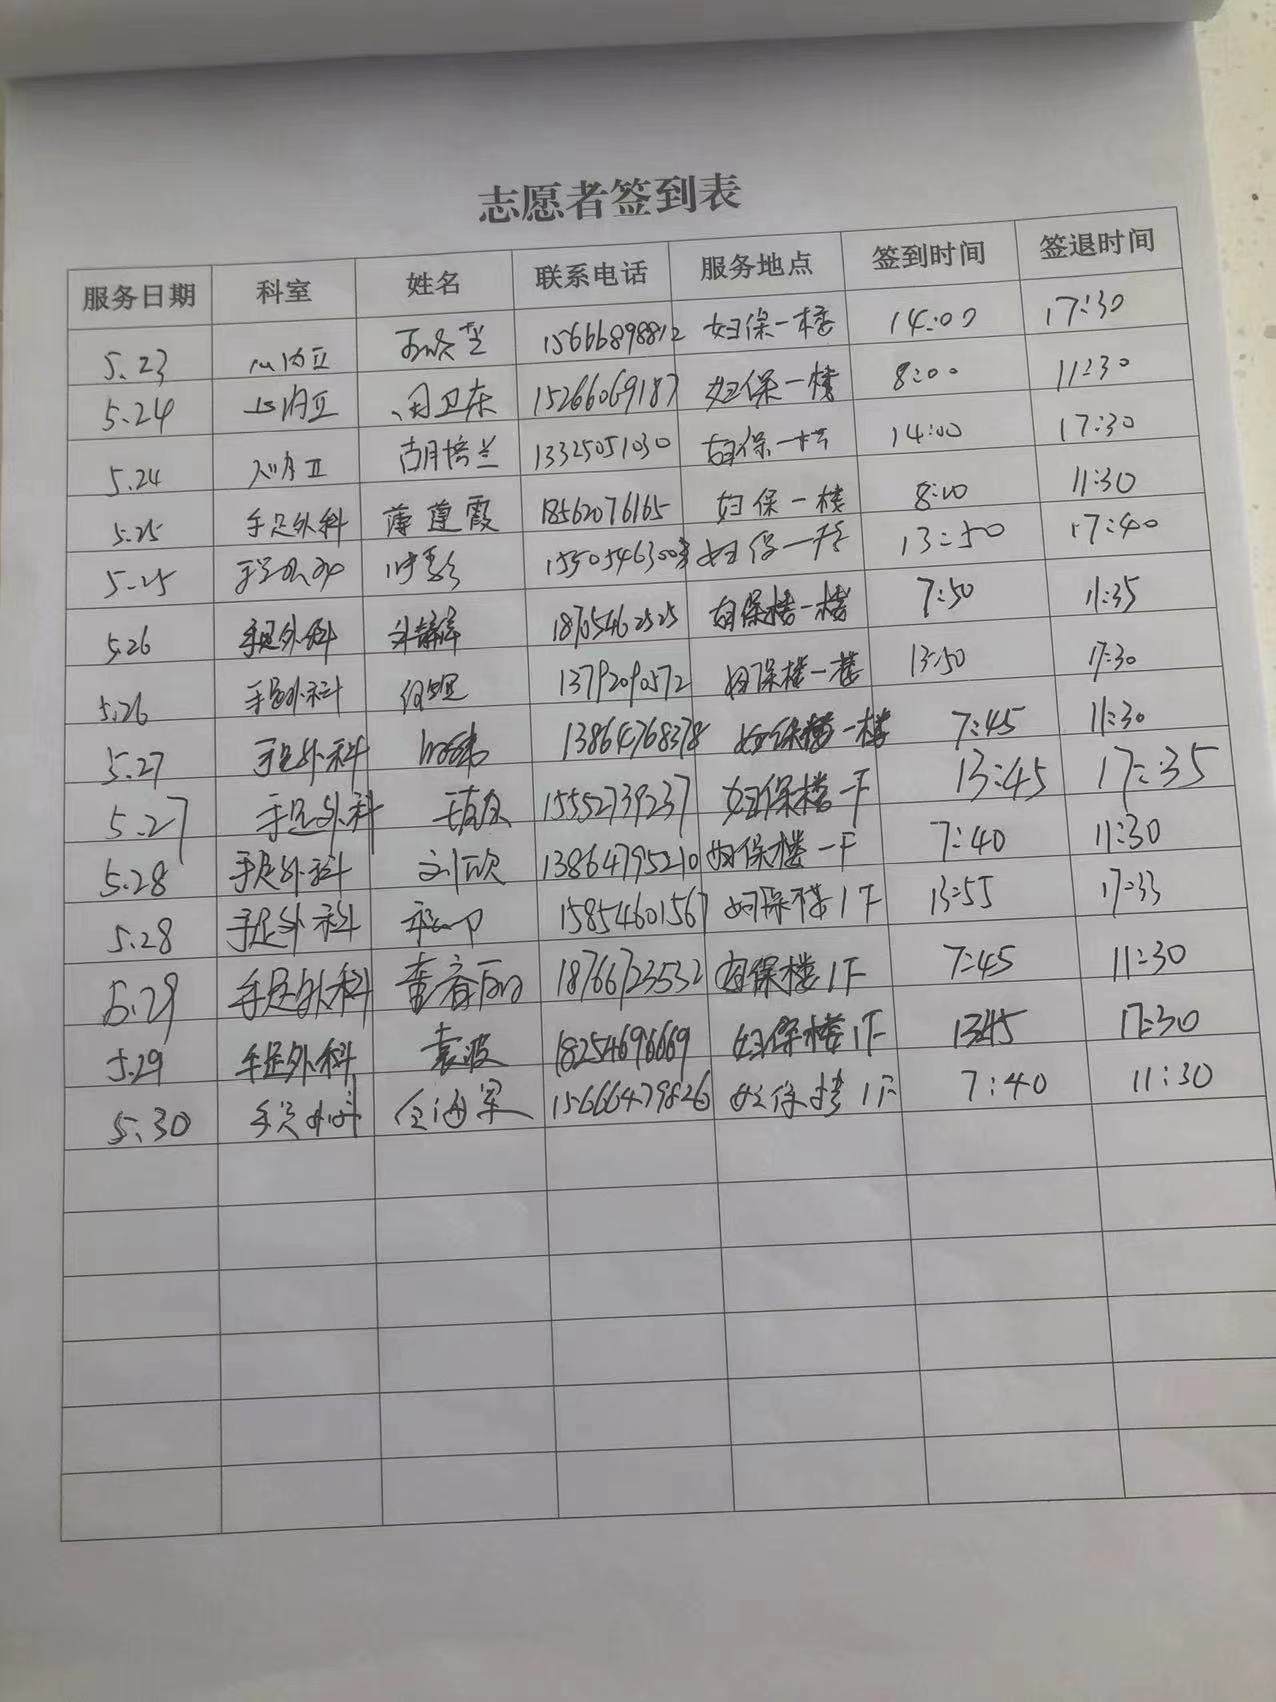 志愿者签到表
服务日期 科室 姓名 联系电话 服务地点 签到时间 签退时间
5.23 心内Ⅱ 15666898812 妇保一楼 14:00 17:30
5.24 心内Ⅱ 周卫东 15266069187 妇保一楼 8:00 11:30
5.24 心内Ⅱ 胡培兰 13325051030 妇保一楼 14:00 17:30
5.25 手足外科 薄莲霞 18562076165 妇保一楼 8:00 11:30
5.25 手足外科 妇保一楼 13:50 17:40
5.26 手足外科 18705462525 妇保楼一楼 7:50 11:35
5.26 手足外科 13792090572 妇保楼一楼 13:50 17:30
5.27 手足外科 13864768378 妇保楼一楼 7:45 11:30
5.27 手足外科 15552739237 妇保楼一F 13:45 17:35
5.28 手足外科 刘欣 13864795210 妇保楼一F 7:40 11:30
5.28 手足外科 15854601567 妇保楼1F 13:55 17:33
5.29 手足外科 18766723532 妇保楼1F 7:45 11:30
5.29 手足外科 袁波 18254696669 妇保楼1F 1345 17:30
5.30 手足外科 15666479826 妇保楼1F 7:40 11:30